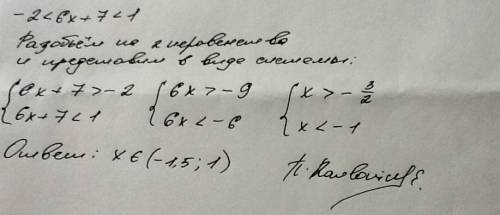 -2<6x+7<1
Разобьём на 2 неравенства
и представим в виде системы:
{6x+7>-2 {6x>-9 {x>-3/2
{6x+7<1 {6x<-6 {x<-1
Ответ: x∈(-1,5; 1)